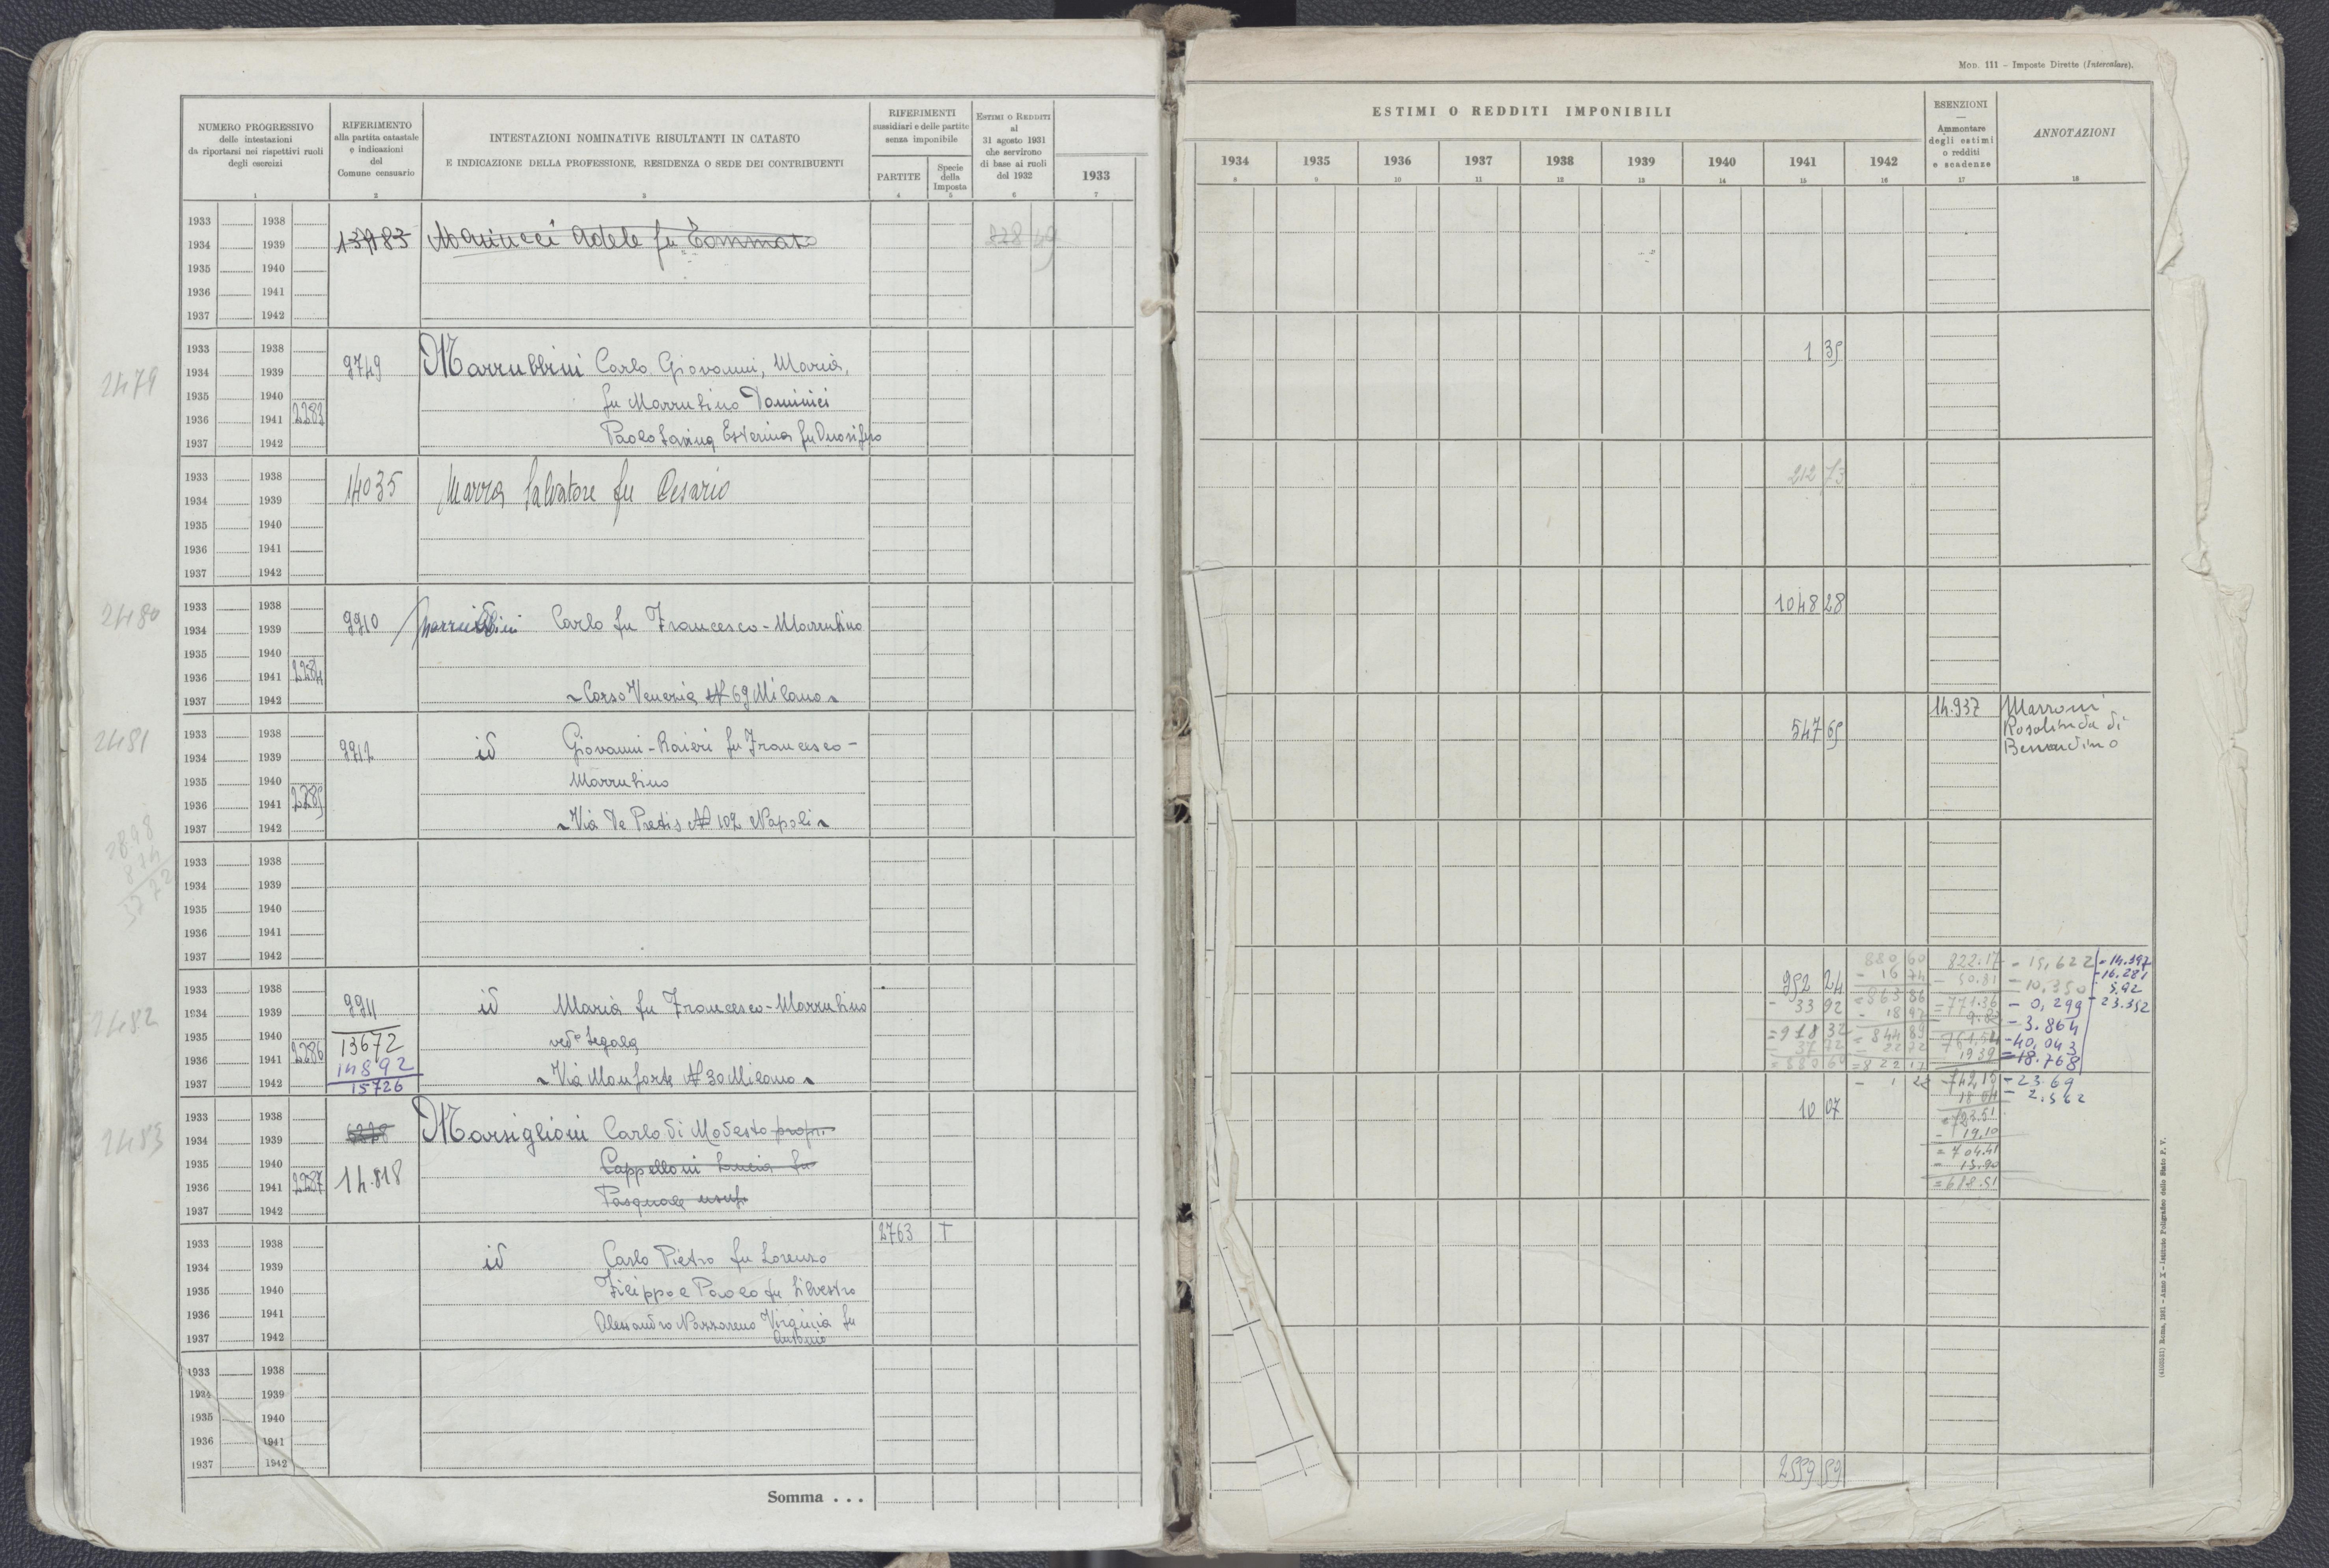 Mod. 111 - Imposte Dirette (Intercalare).
NUMERO PROGRESSIVO
delle intestazioni
da riportarsi nei rispettivi ruoli
degli esercizi
1
RIFERIMENTO
alla partita catastale
e indicazioni
del
Comune censuario
2
INTESTAZIONI NOMINATIVE RISULTANTI IN CATASTO
E INDICAZIONE DELLA PROFESSIONE, RESIDENZA O SEDE DEI CONTRIBUENTI
3
RIFERIMENTI
sussidiari e delle partite
senza imponibile
PARTITE
4
Specie
della
Imposta
5
ESTIMI O REDDITI
al
31 agosto 1931
che servirono
di base ai ruoli
del 1932
6
1933
7
ESTIMI O REDDITI IMPONIBILI
1934 1935 1936 1937 1938 1939 1940 1941 1942
8 9 10 11 12 13 14 15 16
ESENZIONI
Ammontare
degli estimi
o redditi
e scadenze
17
ANNOTAZIONI
18
1933 1938
1934 1939 Adele fu Tommaso
1935 1940
1936 1941
1937 1942
1933 1938 1 35
2479 1934 1939 9749 Marrubbini Carlo Giovanni, Maria,
1935 1940 fu Marrubino Dominici
1936 1941 2283
1937 1942 Paolo Savina Esterina fu
1933 1938 14035 Marra Salvatore fu Cesario 212 73
1934 1939
1935 1940
1936 1941
1937 1942
2480 1933 1938 1048 28
1934 1939 9910 Marrubbini Carlo fu Francesco - Marrubino
1935 1940
1936 1941 2284
1937 1942 Corso Venezia N 69 Milano
2481 1933 1938 547 65 14.937 Marroni
Rosalinda di
Bernardino
1934 1939 9912 id Giovanni - Raieri fu Francesco -
1935 1940 Marrubino
1936 1941 2285
1937 1942 Via De Pretis N 102 Napoli
2898
874
3772
1933 1938
1934 1939
1935 1940
1936 1941
1937 1942
1933 1938 952 24 880 60 822.17 - 15,622 - 14.197
- 33 92 - 16 74 - 50.81 - 10,350 - 16.281
2482 1934 1939 9911 id Maria fu Francesco - Marrubino = 863 86 = 771.36 - 0,299 5,92
1935 1940 13672 ved. Segala = 918 32 - 18 97 - 3.864 - 23.352
1936 1941 2286 14892 37 72 = 844 89 - 40,043
1937 1942 15726 Via Monforte N 30 Milano = 880 60 22 72 19 39 = 18.768
= 822 17
742,15 - 23.69
18 64 - 2.562
= 723.51
- 19.10
= 704.41
- 15.90
= 688.51
2483 1933 1938 10 07
1934 1939 6278 Marsiglioni Carlo di Modesto propr.
1935 1940 Cappelloni Lucia fu
1936 1941 2287 14.818
1937 1942 Pasquale usuf.
1933 1938 2763 T
1934 1939 id Carlo Pietro fu Lorenzo
1935 1940 Filippo e Paolo fu Silvestro
1936 1941 Alessandro Nazzareno Virginia fu
1937 1942 Antonio
1933 1938
1934 1939
1935 1940
1936 1941
1937 1942
Somma . . . 2559 59
(4100351) Roma, 1931 - Anno X - Istituto Poligrafico dello Stato P. V.